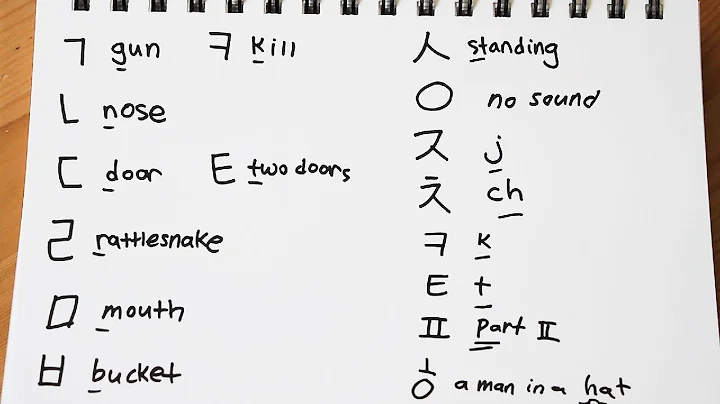 ㄱ gun ㅋ kill
ㄴ nose
ㄷ door ㅌ two doors
ㄹ rattlesnake
ㅁ mouth
ㅂ bucket
ㅅ standing
ㅇ no sound
ㅈ j
ㅊ ch
ㅋ k
ㅌ t
ㅍ part II
ㅎ a man in a hat